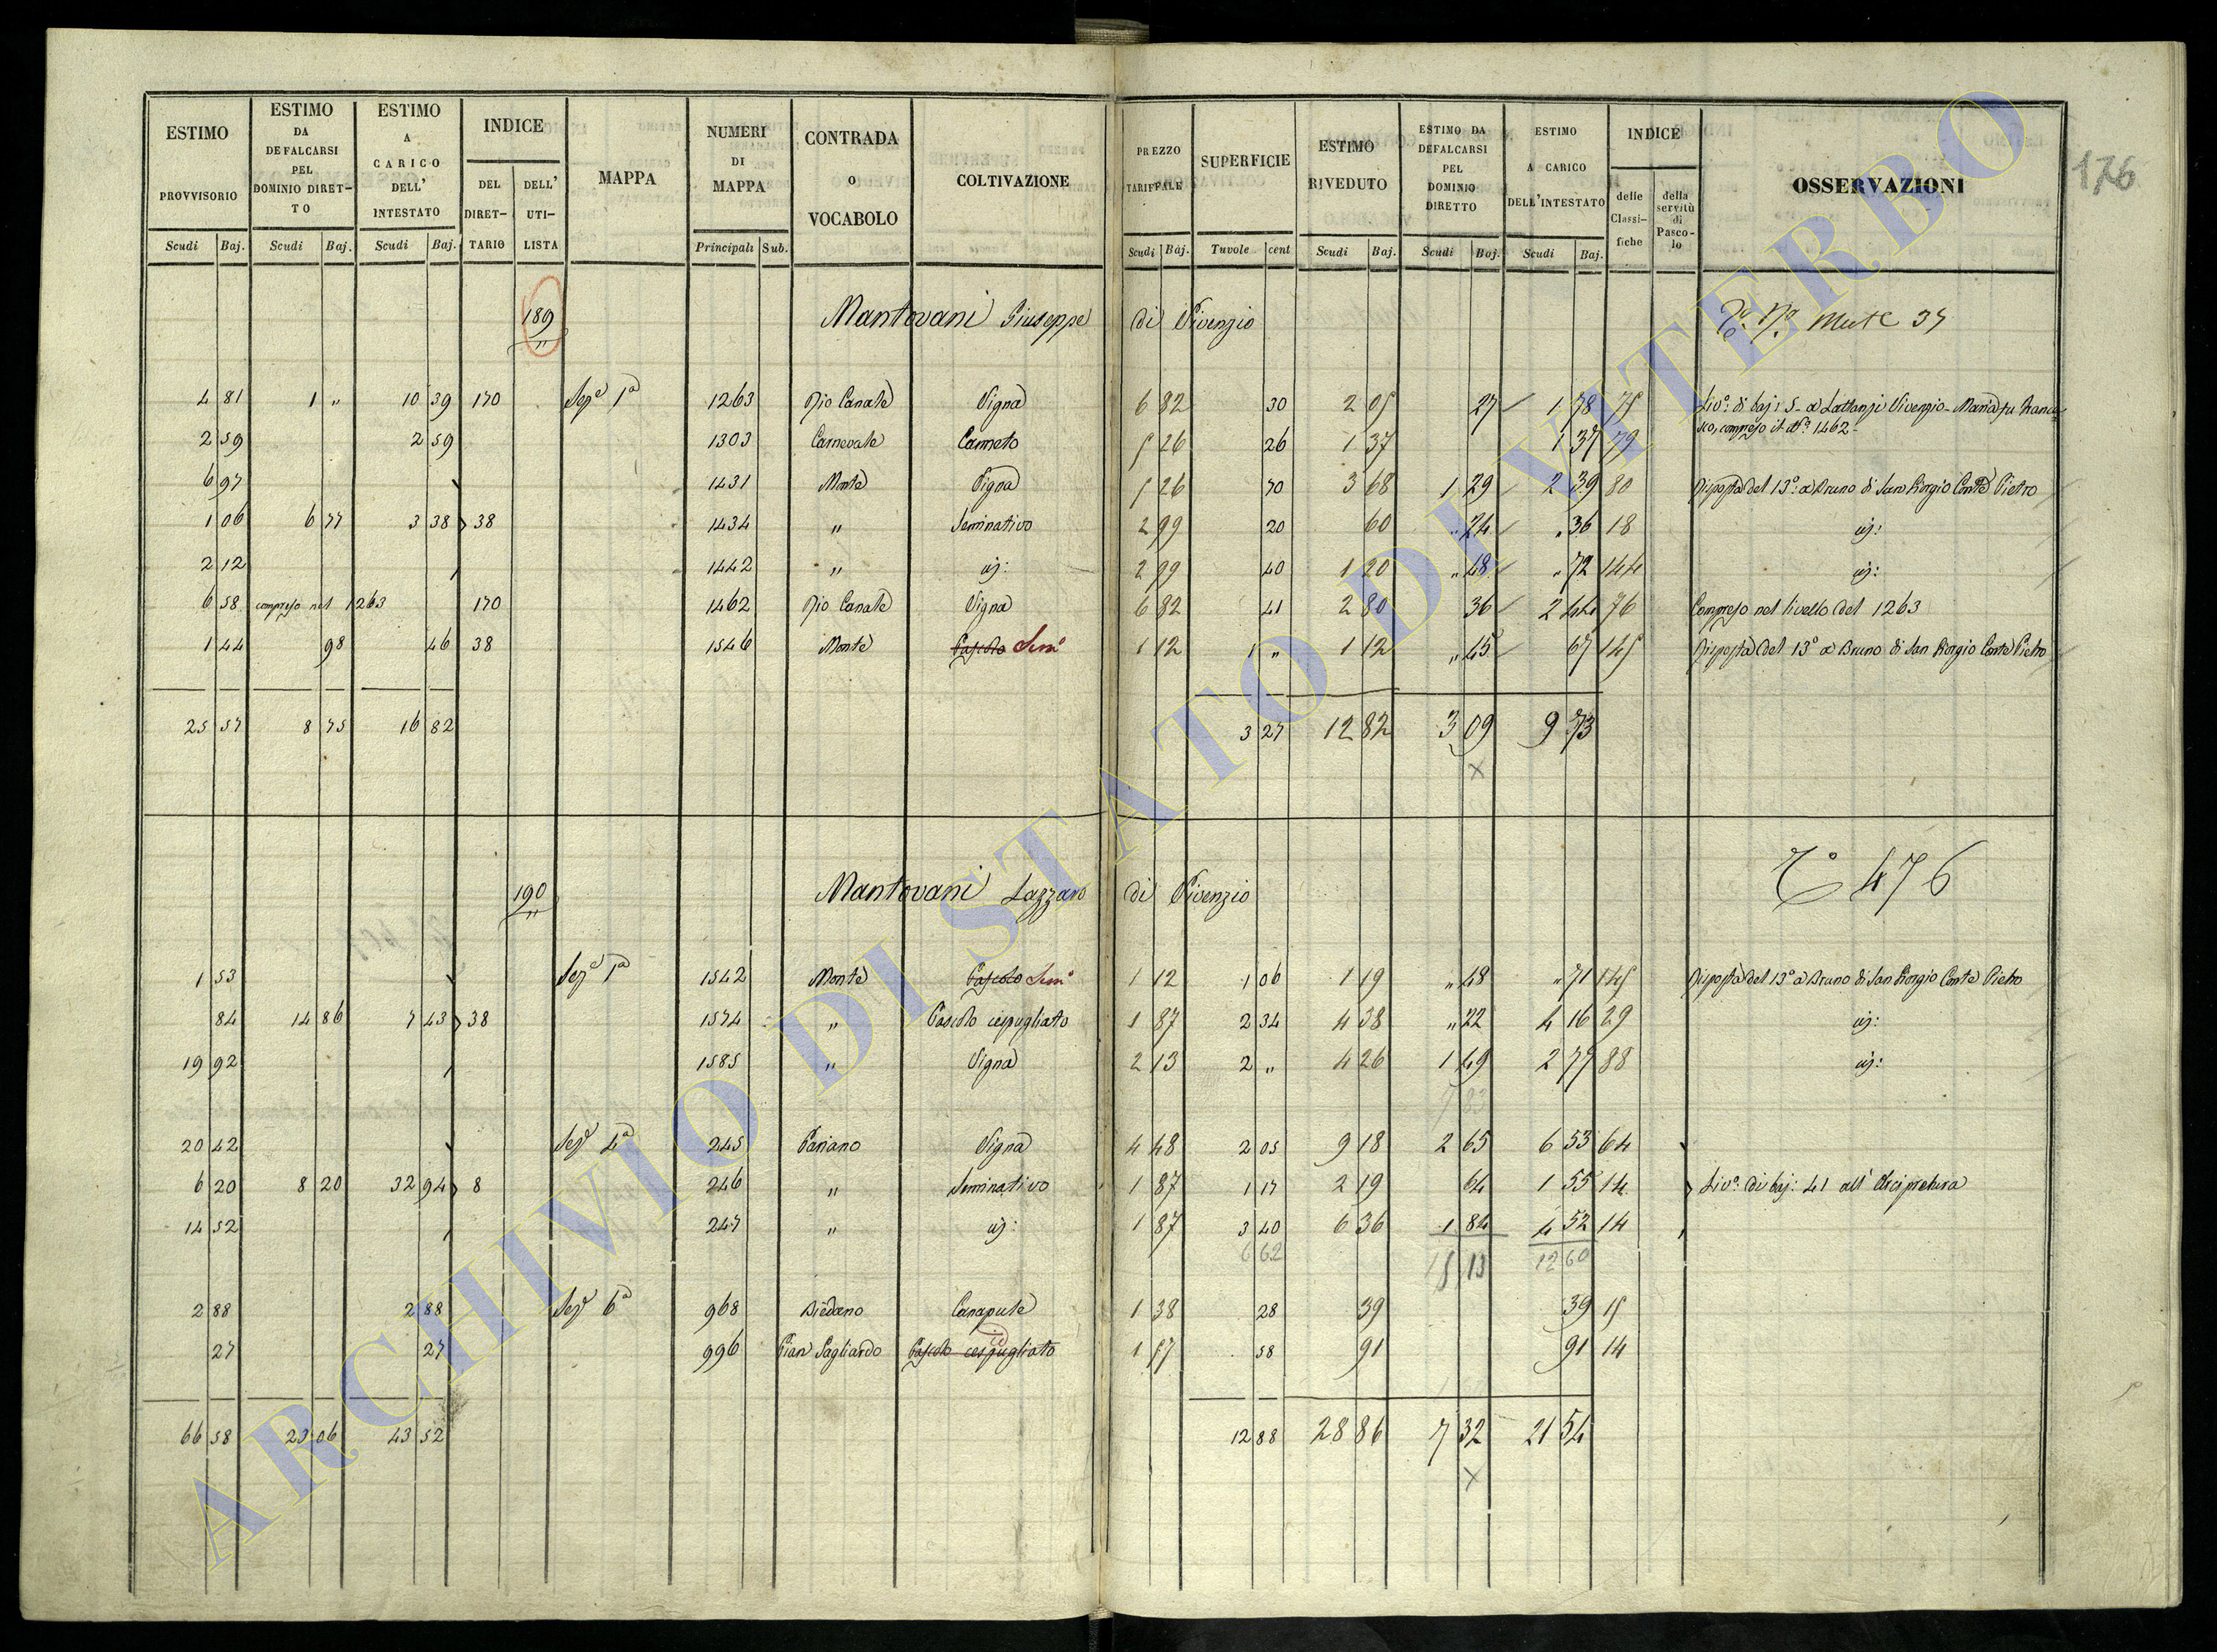 176
ESTIMO PROVVISORIO Scudi Baj. | ESTIMO DA DEFALCARSI PEL DOMINIO DIRETTO Scudi Baj. | ESTIMO A CARICO DELL' INTESTATO Scudi Baj. | INDICE DEL DIRETTARIO | DELL' UTILISTA | MAPPA | NUMERI DI MAPPA Principali Sub. | CONTRADA O VOCABOLO | COLTIVAZIONE | PREZZO TARIFFALE Scudi Baj. | SUPERFICIE Tavole cent | ESTIMO RIVEDUTO Scudi Baj. | ESTIMO DA DEFALCARSI PEL DOMINIO DIRETTO Scudi Baj. | ESTIMO A CARICO DELL'INTESTATO Scudi Baj. | INDICE delle Classifiche | della servitù di Pascolo | OSSERVAZIONI
189 Mantovani Giuseppe di Vivenzio
4 81 1 " 10 39 170 Sez.e 1a 1263 Rio Canale Vigna 6 82 30 2 05 27 1 78 75 Liv.o di baj: 5 - a Lattanzi Vivenzio - Maria fu France
2 59 2 59 1303 Carnevale Canneto 5 26 26 1 37 1 37 79 sco, compreso il No. 1462 -
6 97 1431 Monte Vigna 5 26 70 3 68 1 29 2 39 80 Risposta del 13o: a Bruno di San Giorgio Conte Pietro
1 06 6 77 3 38 38 1434 " Seminativo 2 99 20 60 " 24 " 36 18 id:
2 12 1442 " id: 2 99 40 1 20 " 48 " 72 144 id:
6 58 compreso nel 1263 170 1462 Rio Canale Vigna 6 82 41 2 80 36 2 44 76 Compreso nel livello del 1263
1 44 98 46 38 1546 Monte Pascolo Semo 1 12 1 " 1 12 " 45 67 145 Risposta del 13o a Bruno di San Giorgio Conte Pietro
25 57 8 75 16 82 3 27 12 82 3 09 9 73
X
To 476
190 Mantovani Lazzaro di Vivenzio
1 53 Sez.e 1a 1542 Monte Pascolo Semo 1 12 1 06 1 19 " 48 " 71 145 Risposta del 13o a Bruno di San Giorgio Conte Pietro
84 14 86 7 43 38 1574 " Pascolo cespugliato 1 87 2 34 4 38 " 22 4 16 29 id:
19 92 1585 " Vigna 2 13 2 " 4 26 1 49 2 77 88 id:
7 83
20 42 Sez.e 4a 245 Pariano Vigna 4 48 2 05 9 18 2 65 6 53 64
6 20 8 20 32 94 8 246 " Seminativo 1 87 1 17 2 19 64 1 55 14 Liv.o di baj: 41 all' Arcipretura
14 52 247 " id: 1 87 3 40 6 36 1 84 4 52 14
6 62 5 13 12 60
2 88 2 88 Sez.e 6a 968 Biedano Canapule 1 38 28 39 39 15
27 27 996 Pian Gagliardo Pascolo cespugliato id 1 57 58 91 91 14
66 58 23 06 43 52 12 88 28 86 7 32 21 54
X
ARCHIVIO DI STATO DI VITERBO